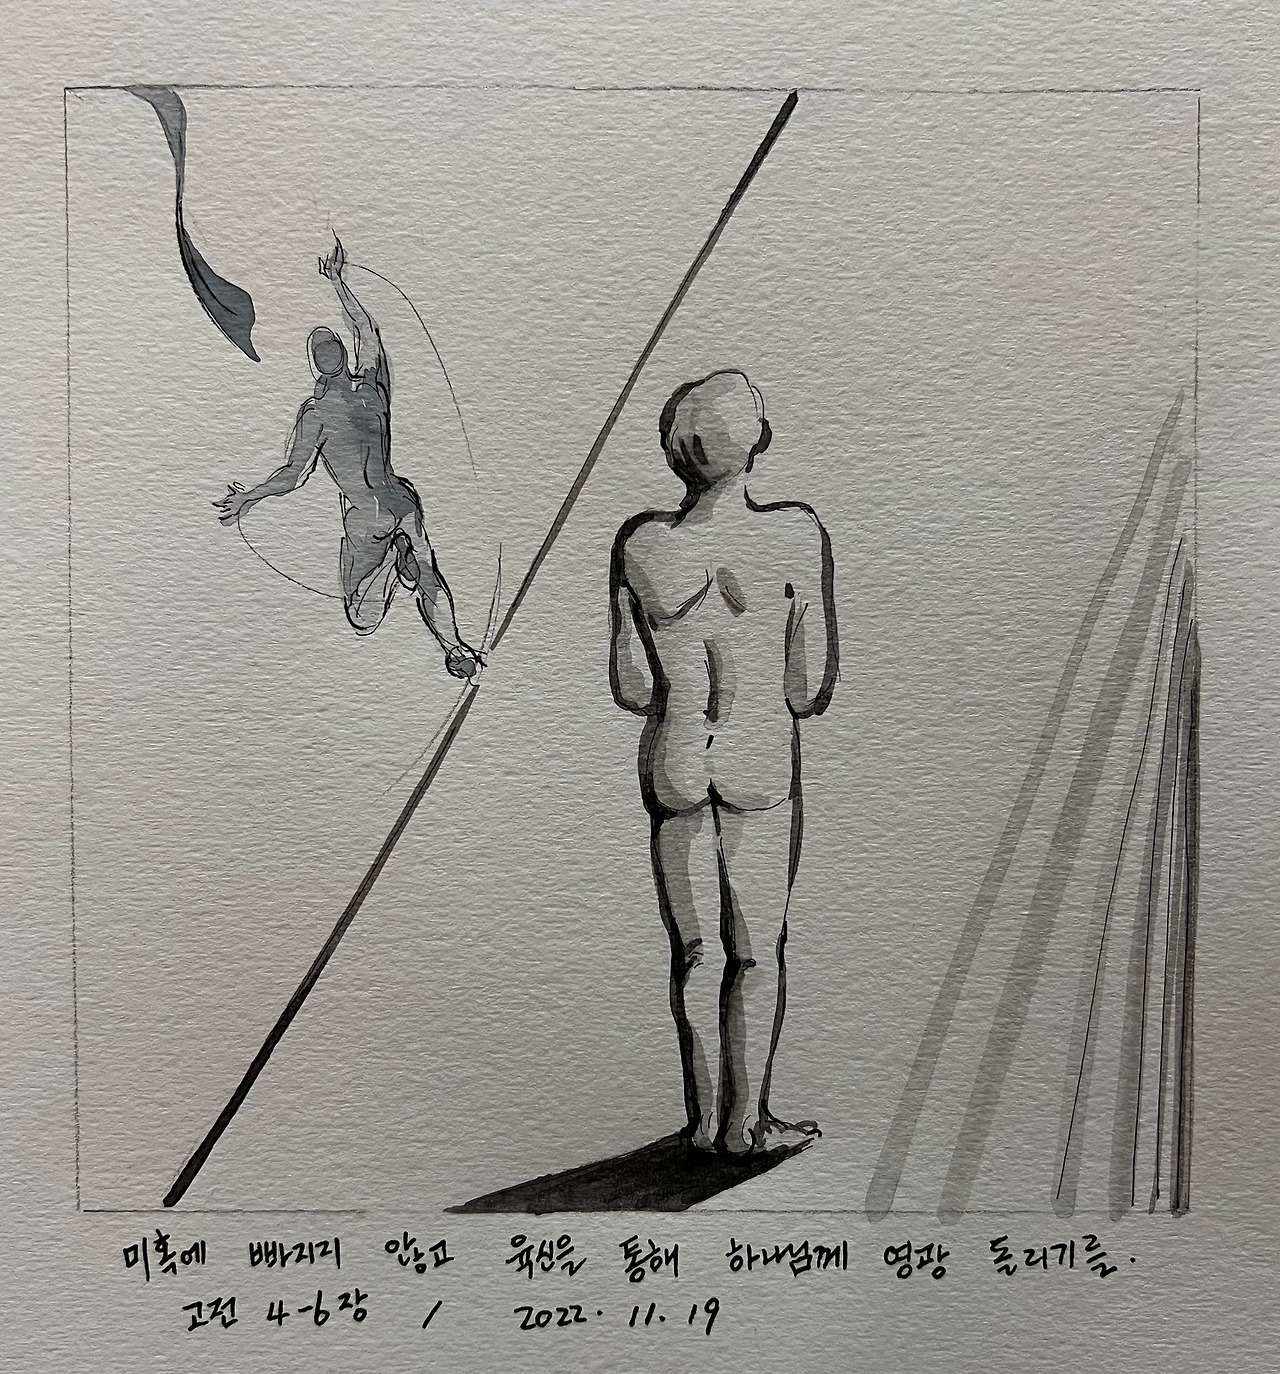 미혹에 빠지지 않고 육신을 통해 하나님께 영광 돌리기를.
고전 4-6장 / 2022. 11. 19